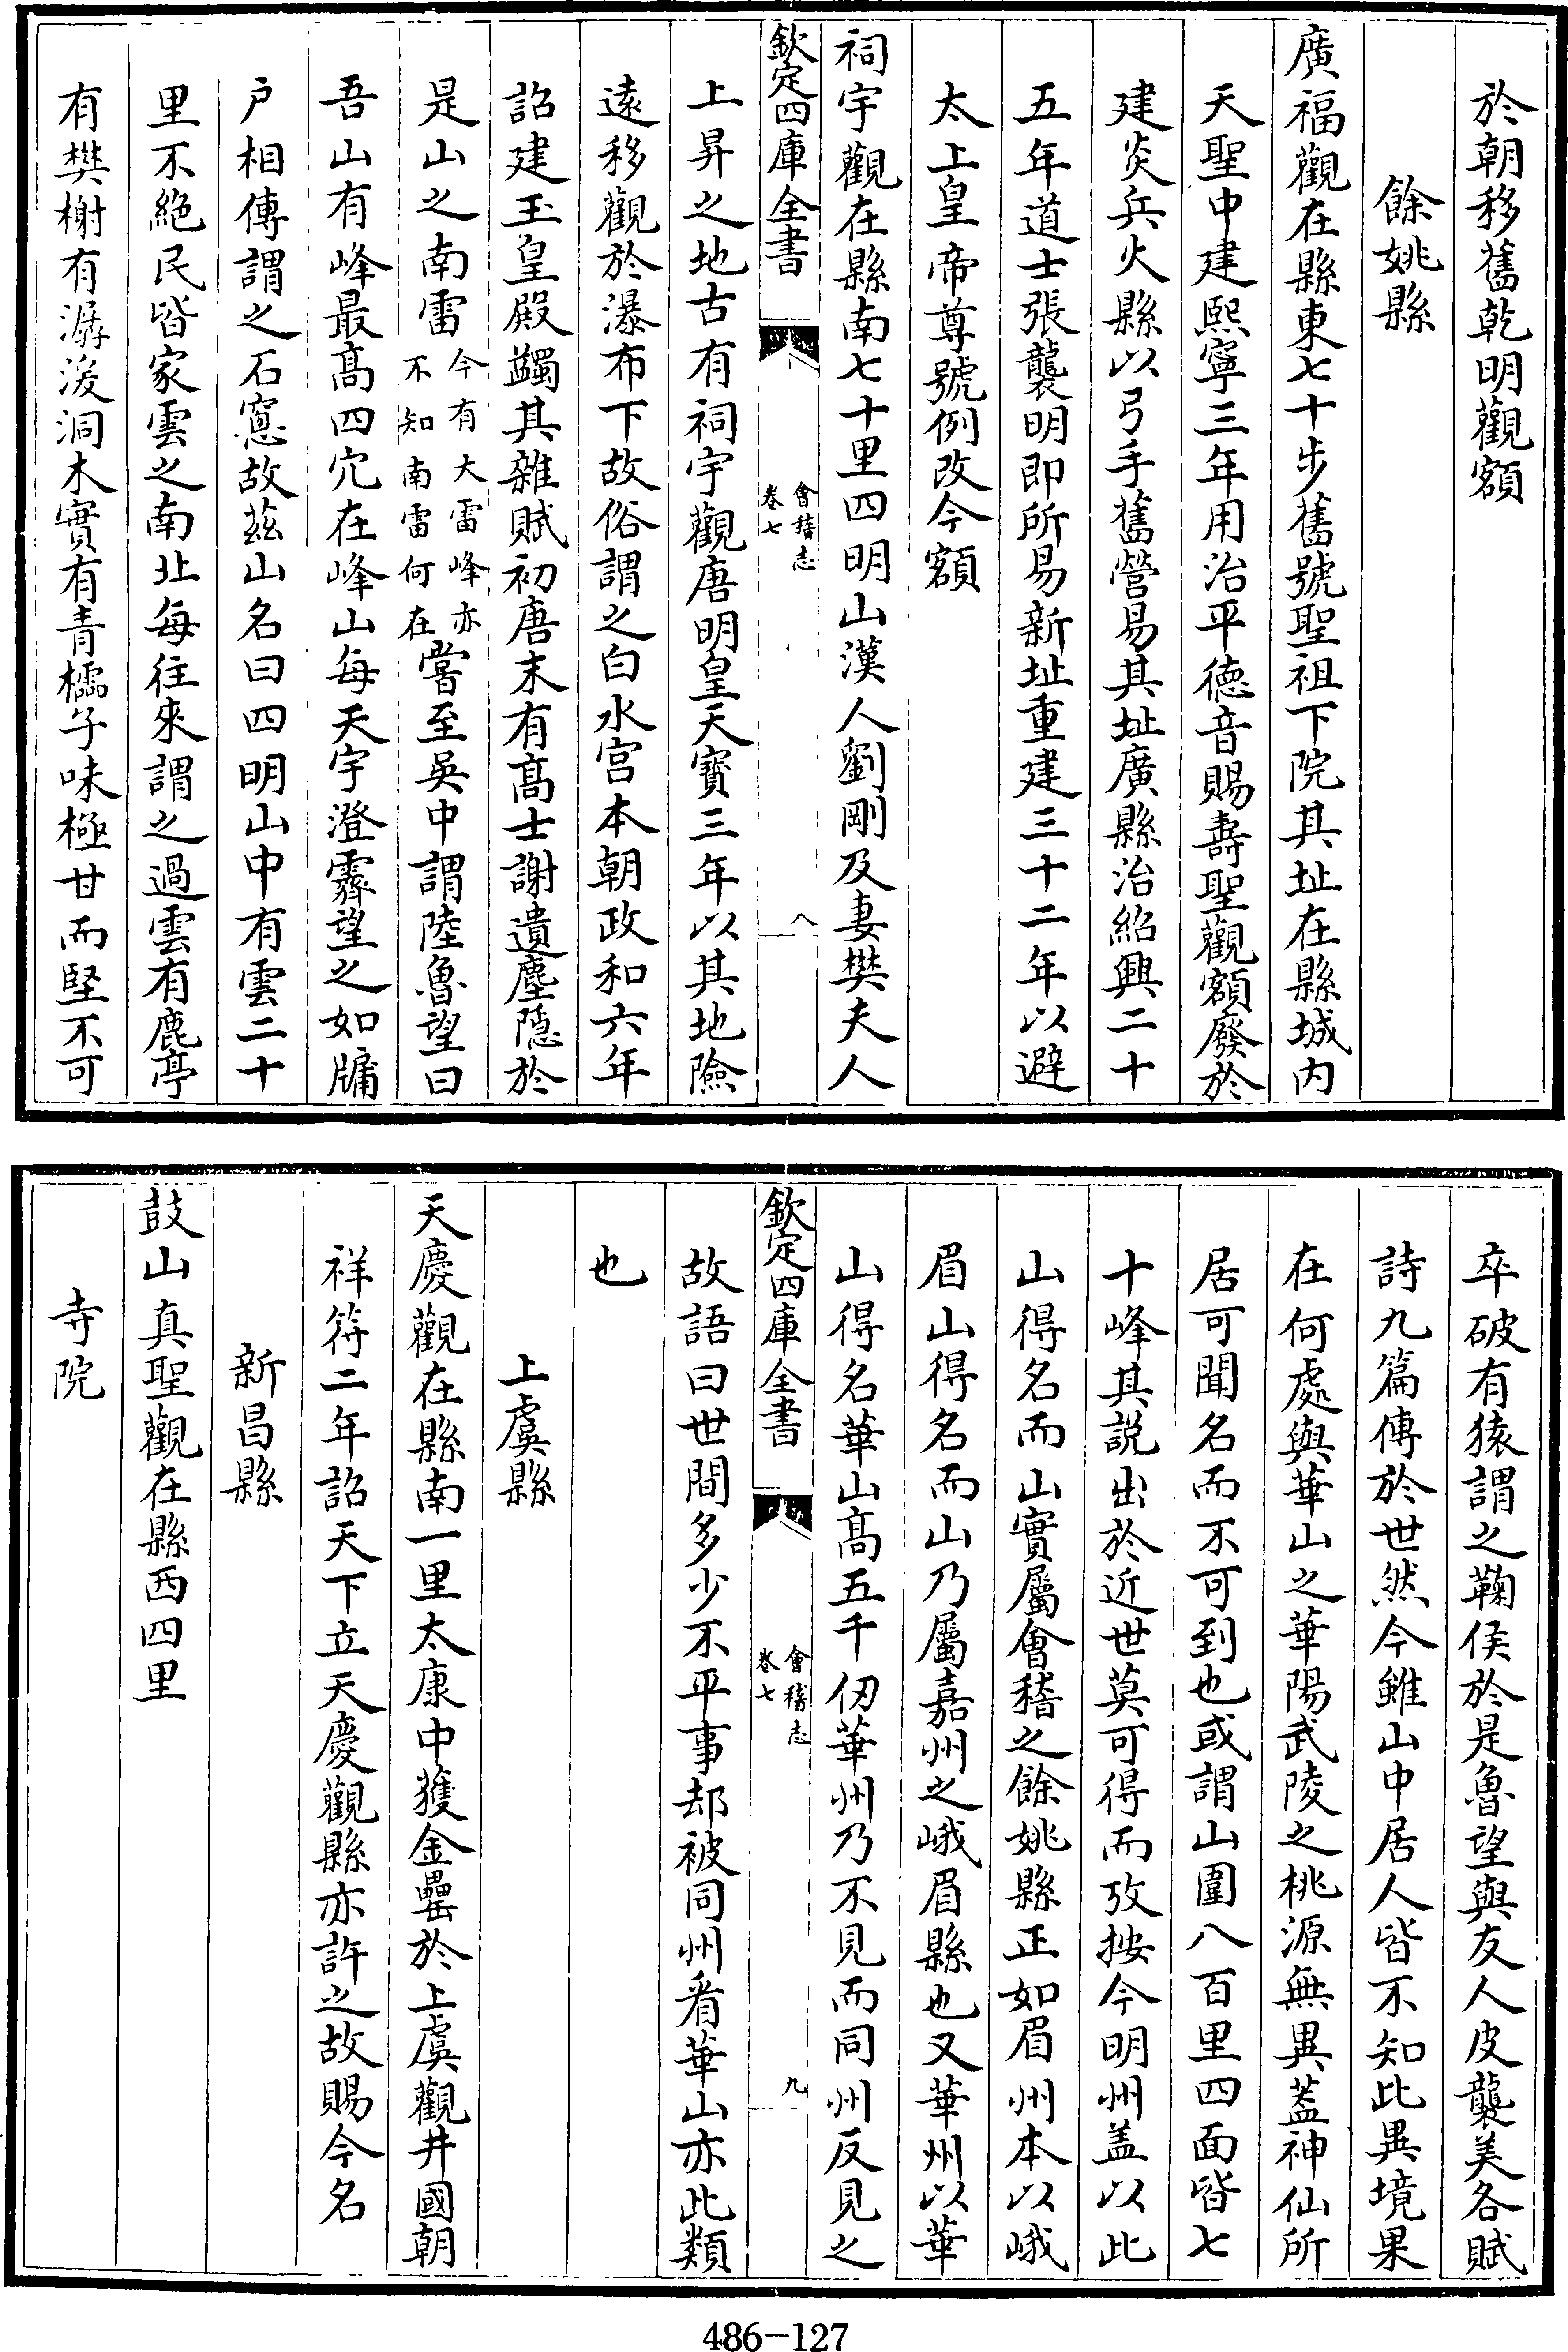 於朝移舊乾明觀額
餘姚縣
廣福觀在縣東七十步舊號聖祖下院其址在縣城内
天聖中建熙寧三年用治平德音賜壽聖觀額廢於
建炎兵火縣以弓手舊營易其址廣縣治紹興二十
五年道士張襲明即所易新址重建三十二年以避
太上皇帝尊號例改今額
祠宇觀在縣南七十里四明山漢人劉剛及妻樊夫人
欽定四庫全書
會稽志
卷七
八
上昇之地古有祠宇觀唐明皇天寳三年以其地險
逺移觀於瀑布下故俗謂之白水宫本朝政和六年
詔建玉皇殿蠲其雜賦初唐末有髙士謝遺塵隠於
是山之南雷今有大雷峰亦不知南雷何在嘗至吳中謂陸魯望曰
吾山有峰最髙四穴在峰山每天宇澄霽望之如牖
戸相傳謂之石窻故兹山名曰四明山中有雲二十
里不絶民皆家雲之南北每往來謂之過雲有鹿亭
有樊榭有潺湲洞木實有青櫺子味極甘而堅不可
卒破有猿謂之鞠侯於是魯望與友人皮襲美各賦
詩九篇傳於世然今雖山中居人皆不知此異境果
在何處與華山之華陽武陵之桃源無異葢神仙所
居可聞名而不可到也或謂山圍八百里四面皆七
十峰其説出於近世莫可得而攷按今明州盖以此
山得名而山實屬會稽之餘姚縣正如眉州本以峨
眉山得名而山乃屬嘉州之峨眉縣也又華州以華
山得名華山髙五千仞華州乃不見而同州反見之
欽定四庫全書
會稽志
卷七
九
故語曰世間多少不平事却被同州看華山亦此類
也
上虞縣
天慶觀在縣南一里太康中獲金罍於上虞觀井國朝
祥符二年詔天下立天慶觀縣亦許之故賜今名
新昌縣
鼓山真聖觀在縣西四里
寺院
486-127